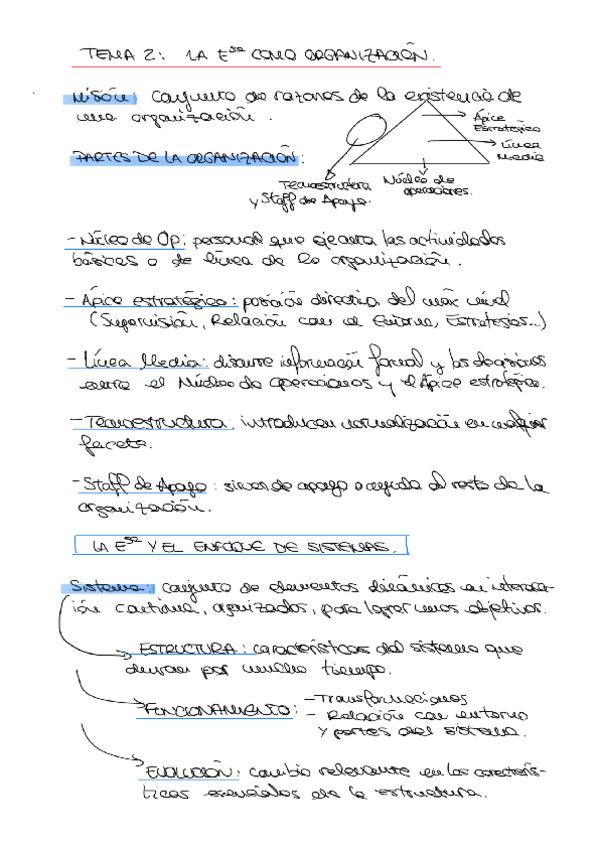 TEMA 2: LA Esa COMO ORGANIZACIÓN.
Misión: Conjunto de razones de la existencia de
una organización.
Ápice
Estratégico
Línea
Media
PARTES DE LA ORGANIZACIÓN:
Tecnoestructura
y Staff de Apoyo.
Núcleo de
operaciones.
- Núcleo de Op: personal que ejecuta las actividades
básicas o de línea de la organización.
- Ápice estratégico: posición directiva del max nivel
(Supervisión, Relación con el Entorno, Estrategias...)
- Línea Media: discurre información formal y las decisiones
entre el Núcleo de operaciones y el Ápice estratégico.
- Tecnoestructura: introducen normalización en cualquier
faceta.
- Staff de Apoyo: sirven de apoyo o ayuda al resto de la
organización.
LA Esa Y EL ENFOQUE DE SISTEMAS.
Sistema: conjunto de elementos dinámicos en interacc-
ión continua, organizados, para lograr unos objetivos.
ESTRUCTURA: características del sistema que
duran por mucho tiempo.
FUNCIONAMIENTO: - Transformaciones
- Relación con entorno
y partes del sistema.
EVOLUCIÓN: cambio relevante en las caracterís-
ticas esenciales de la estructura.